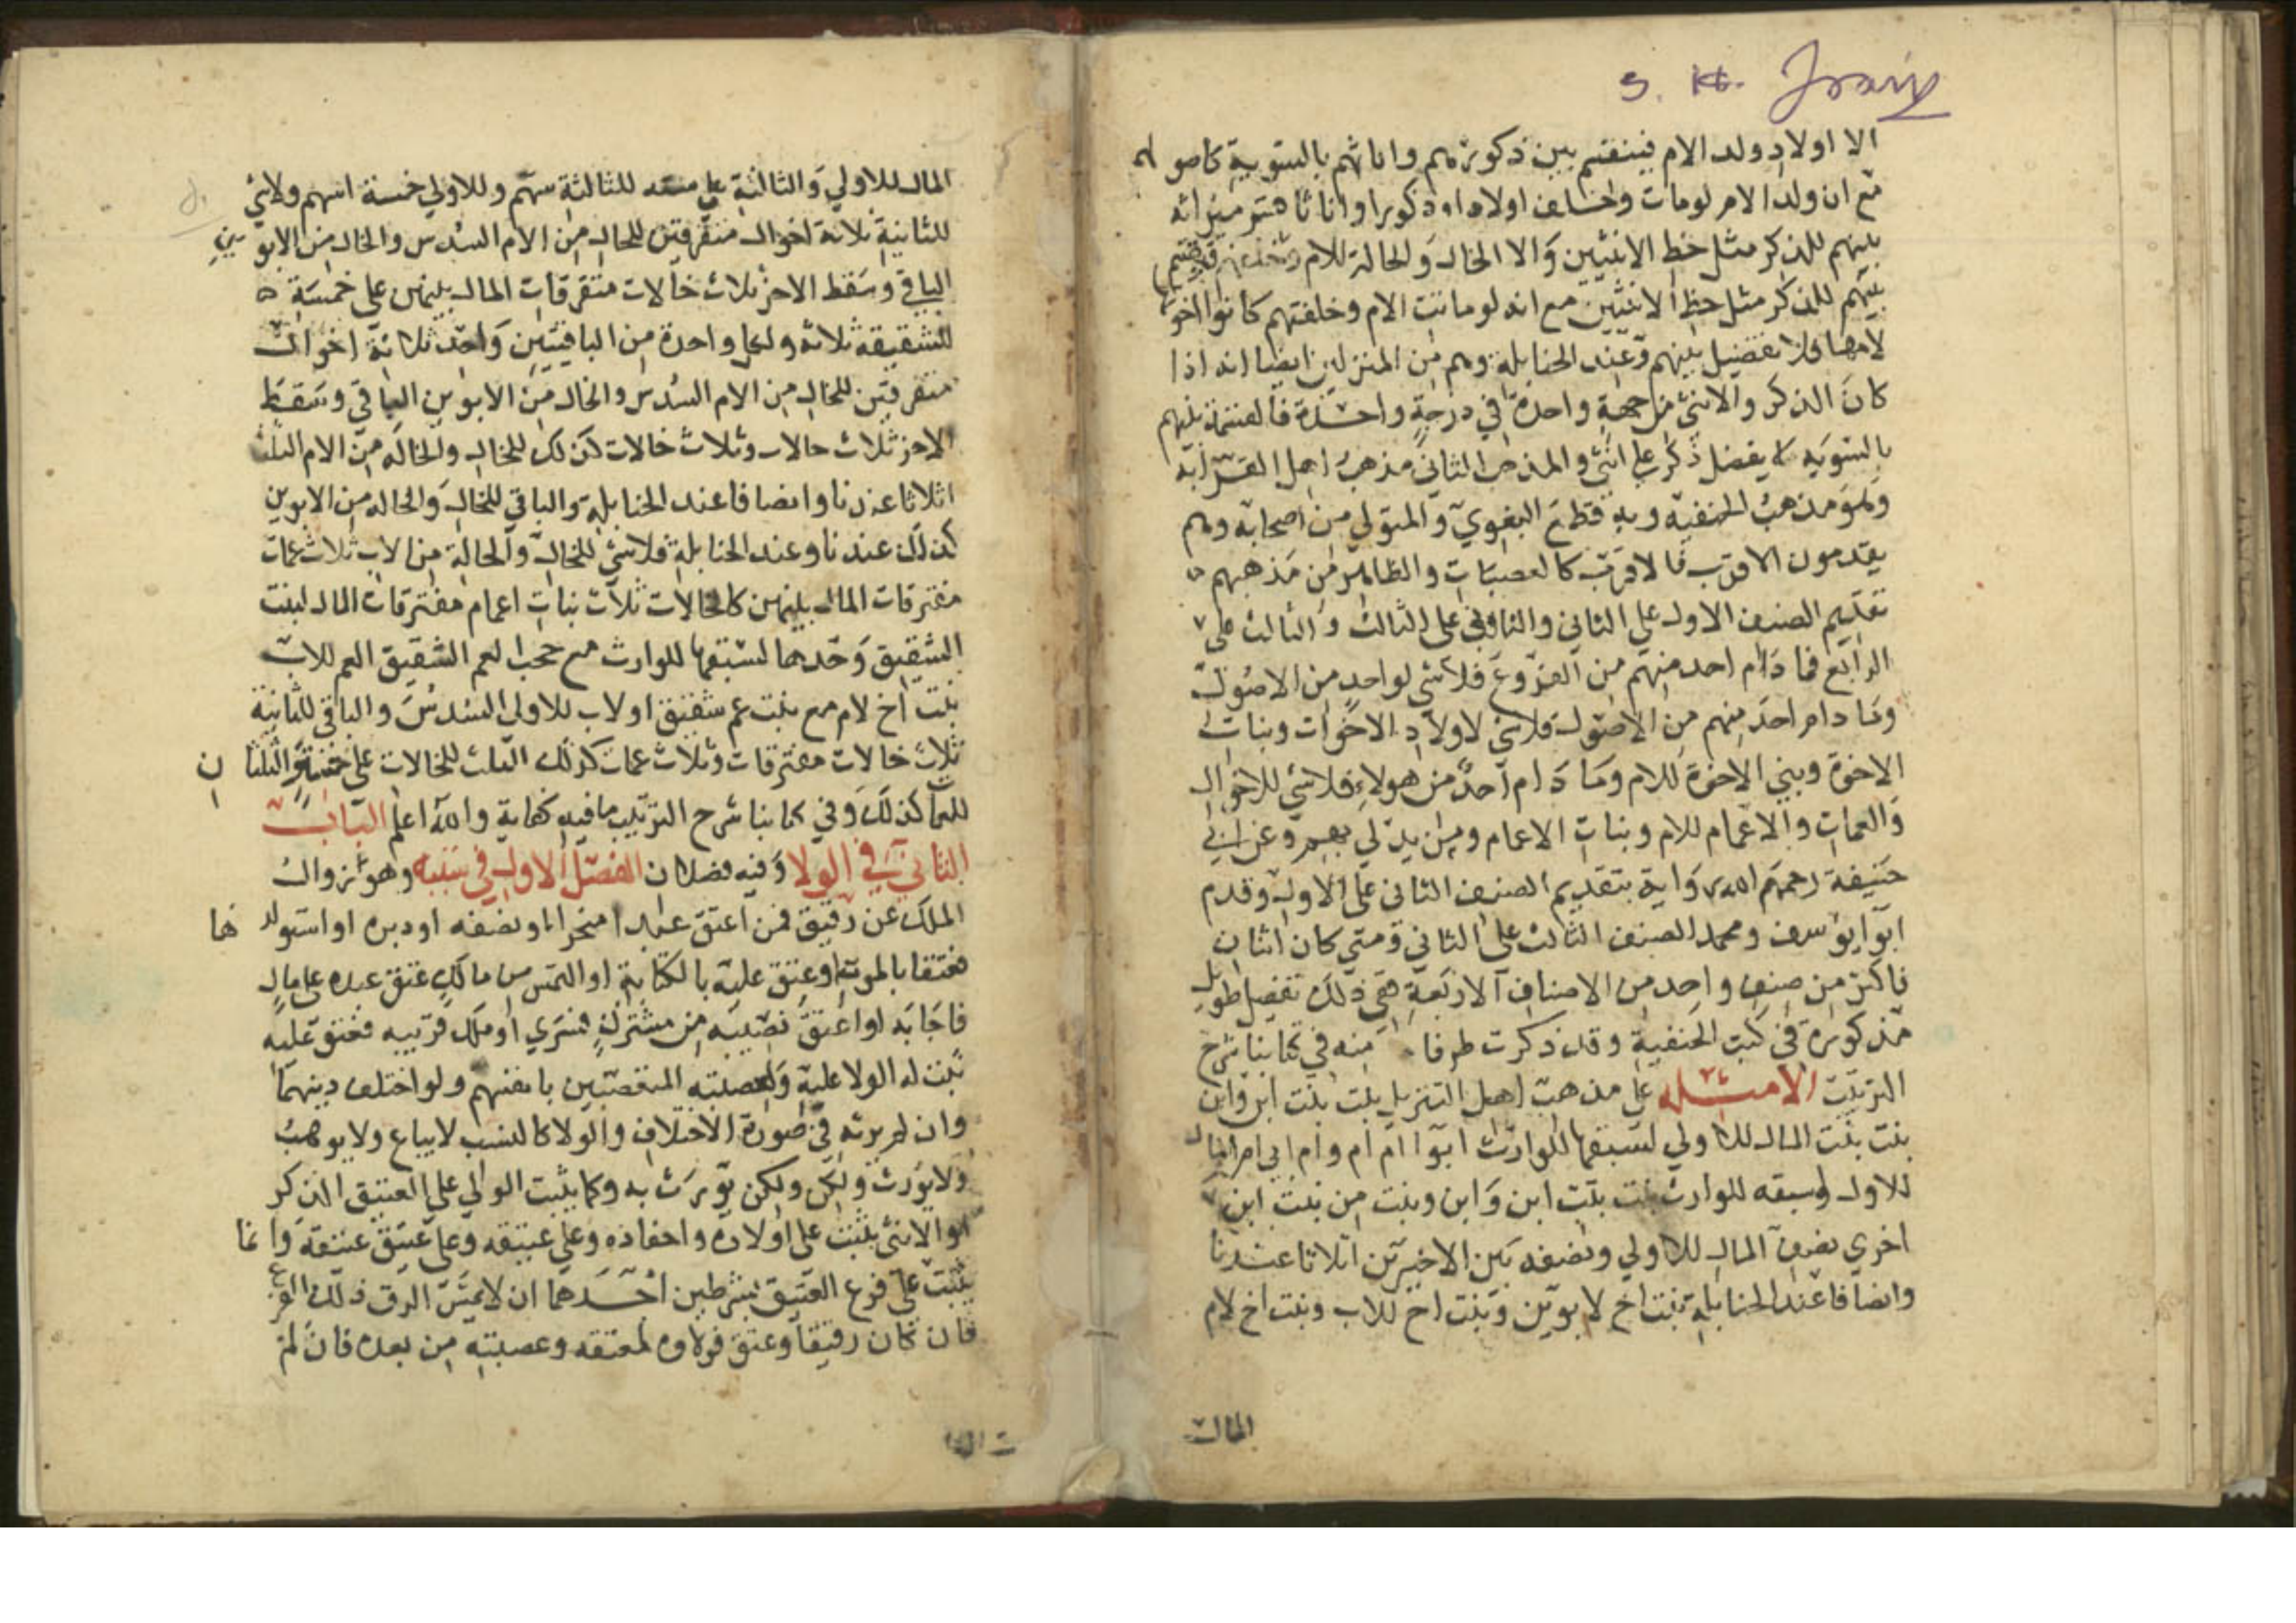 الا اولاد ولد الام فينقسم بين ذكورهم واناثهم بالسوية كاصولهم
مع ان ولد الام لومات وخلف اولادا ذكورا واناثا قسم ميراثه
بينهم للذكر مثل حظ الانثيين والا الخال والخالة للام
بينهم للذكر مثل حظ الانثيين مع انه لوماتت الام وخلفتهم كانوا اخوة
لامها فلا تفضيل بينهم وعند الحنابلة وهم من المنزلين ايضا انه اذا
كان الذكر والانثى من جهة واحدة في درجة واحدة فالقسمة بينهم
بالسويه لا يفضل ذكر على انثى والمذهب الثاني مذهب اهل القرابه
وهو مذهب الحنفيه وبه قطع البغوي والمتولي من اصحابه وهم
يقدمون الاقرب فالاقرب كالعصبات والظاهر من مذهبهم
تقديم الصنف الاول على الثاني والثاني على الثالث والثالث على
الرابع فما دام احد منهم من الفروع فلاشي لواحد من الاصول
وما دام احد منهم من الاصول فلاشي لاولاد الاخوات وبنات
الاخوة وبني الاخوة للام وما دام احد من هولاء فلاشي للاخوال
والعمات والاعمام للام وبنات الاعمام ومن يدلي بهم وعن ابي
حنيفة رحمهم الله رواية بتقديم الصنف الثاني على الاول وقدم
ابوايوسف ومحمد الصنف الثالث على الثاني ومتي كان اثنان
فاكثر من صنف واحد من الاصناف الاربعة ففي ذلك تفصيل طويل
مذكورة في كتب الحنفية وقد ذكرت طرفا منه في كتابنا شرح
الترتيب الامثله على مذهب اهل التنزيل بنت بنت ابن وابن
بنت بنت المال للاولي لسبقها للوارث ابوا ام ام وام ابي ام المال
للاول لسبقه للوارث بنت بنت ابن وابن وبنت من بنت ابن
اخري نصف المال للاولي ونصفه بين الاخيرين اثلاثا عندنا
وانصافا عند الحنابلة بنت اخ لابوين وبنت اخ للاب وبنت اخ لام
المال
المال للاولي والثالثة على سته للثالثة سهم وللاولي خمسة اسهم ولاشي
للثانية ثلاثة اخوال متفرقين للخال من الام السدس والخال من الابوين
الباقي وسقط الاخر ثلاث خالات متفرقات المال بينهن على خمسة
للشقيقه ثلاثه ولكل واحدة من الباقيتين واحد ثلاثة اخوال
متفرقين للخال من الام السدس والخال من الابوين الباقي وسقط
الاخر ثلاث خالات وثلاث خالات كذلك للخال والخاله من الام الثلث
اثلاثا عندنا وانصافا عند الحنابلة والباقي للخال والخاله من الابوين
كذلك عندنا وعند الحنابلة فلاشي للخال والخالة من الاب ثلاث عمات
مفترقات المال بينهن كالخالات ثلاث بنات اعمام مفترقات المال لبنت
الشقيق وحدها لسبقها للوارث مع حجب العم الشقيق العم للاب
بنت اخ لام مع بنت عم شقيق او لاب للاولي السدس والباقي للثانية
ثلاث خالات مفترقات وثلاث عمات كذلك الثلث للخالات على خمسة والثلثان
للعمات كذلك وفي كتابنا شرح الترتيب مافيه كفاية والله اعلم الباب
الثاني في الولا وفيه فصلان الفصل الاول في سببه وهو زوال
الملك عن رقيق فمن اعتق عبدا منجزا او بصفه او دبره او استولدها
فعتقا بالموت او عتق عليه بالكتابة او التمس من مالك عتق عبده على مال
فاجابه او اعتق نصيبه من مشترك فسري او ملك قريبه فعتق عليه
ثبت له الولا عليه ولعصبته المتعصبين بانفسهم ولو اختلف دينهما
وان لم يرثه في صورة الاختلاف والولا كالنسب لايباع ولا يوهب
ولا يورث ولكن ولكن يورث به وكما يثبت الوالي على العتيق الذكر
او الانثى يثبت على اولاده واحفاده وعلى عتيقه وعلى عتيق عتيقه وانما
يثبت على فرع العتيق بشرطين احدهما ان لا يمس الرق ذلك الفرع
فان كان رقيقا وعتق فولاوه لمعتقه وعصبته من بعده فان لم